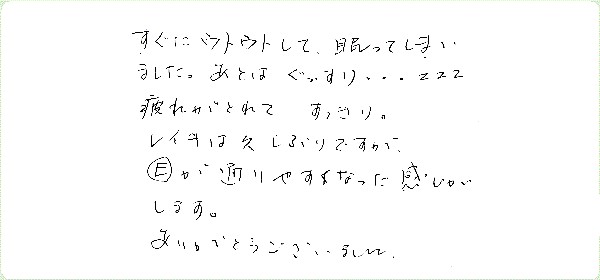 すぐにウトウトして、眠ってしまい
ました。あとは ぐっすり・・・zzz
疲れがとれて すっきり。
レイキは久しぶりですが、
Ⓔが通りやすくなった感じが
します。
ありがとうございました。